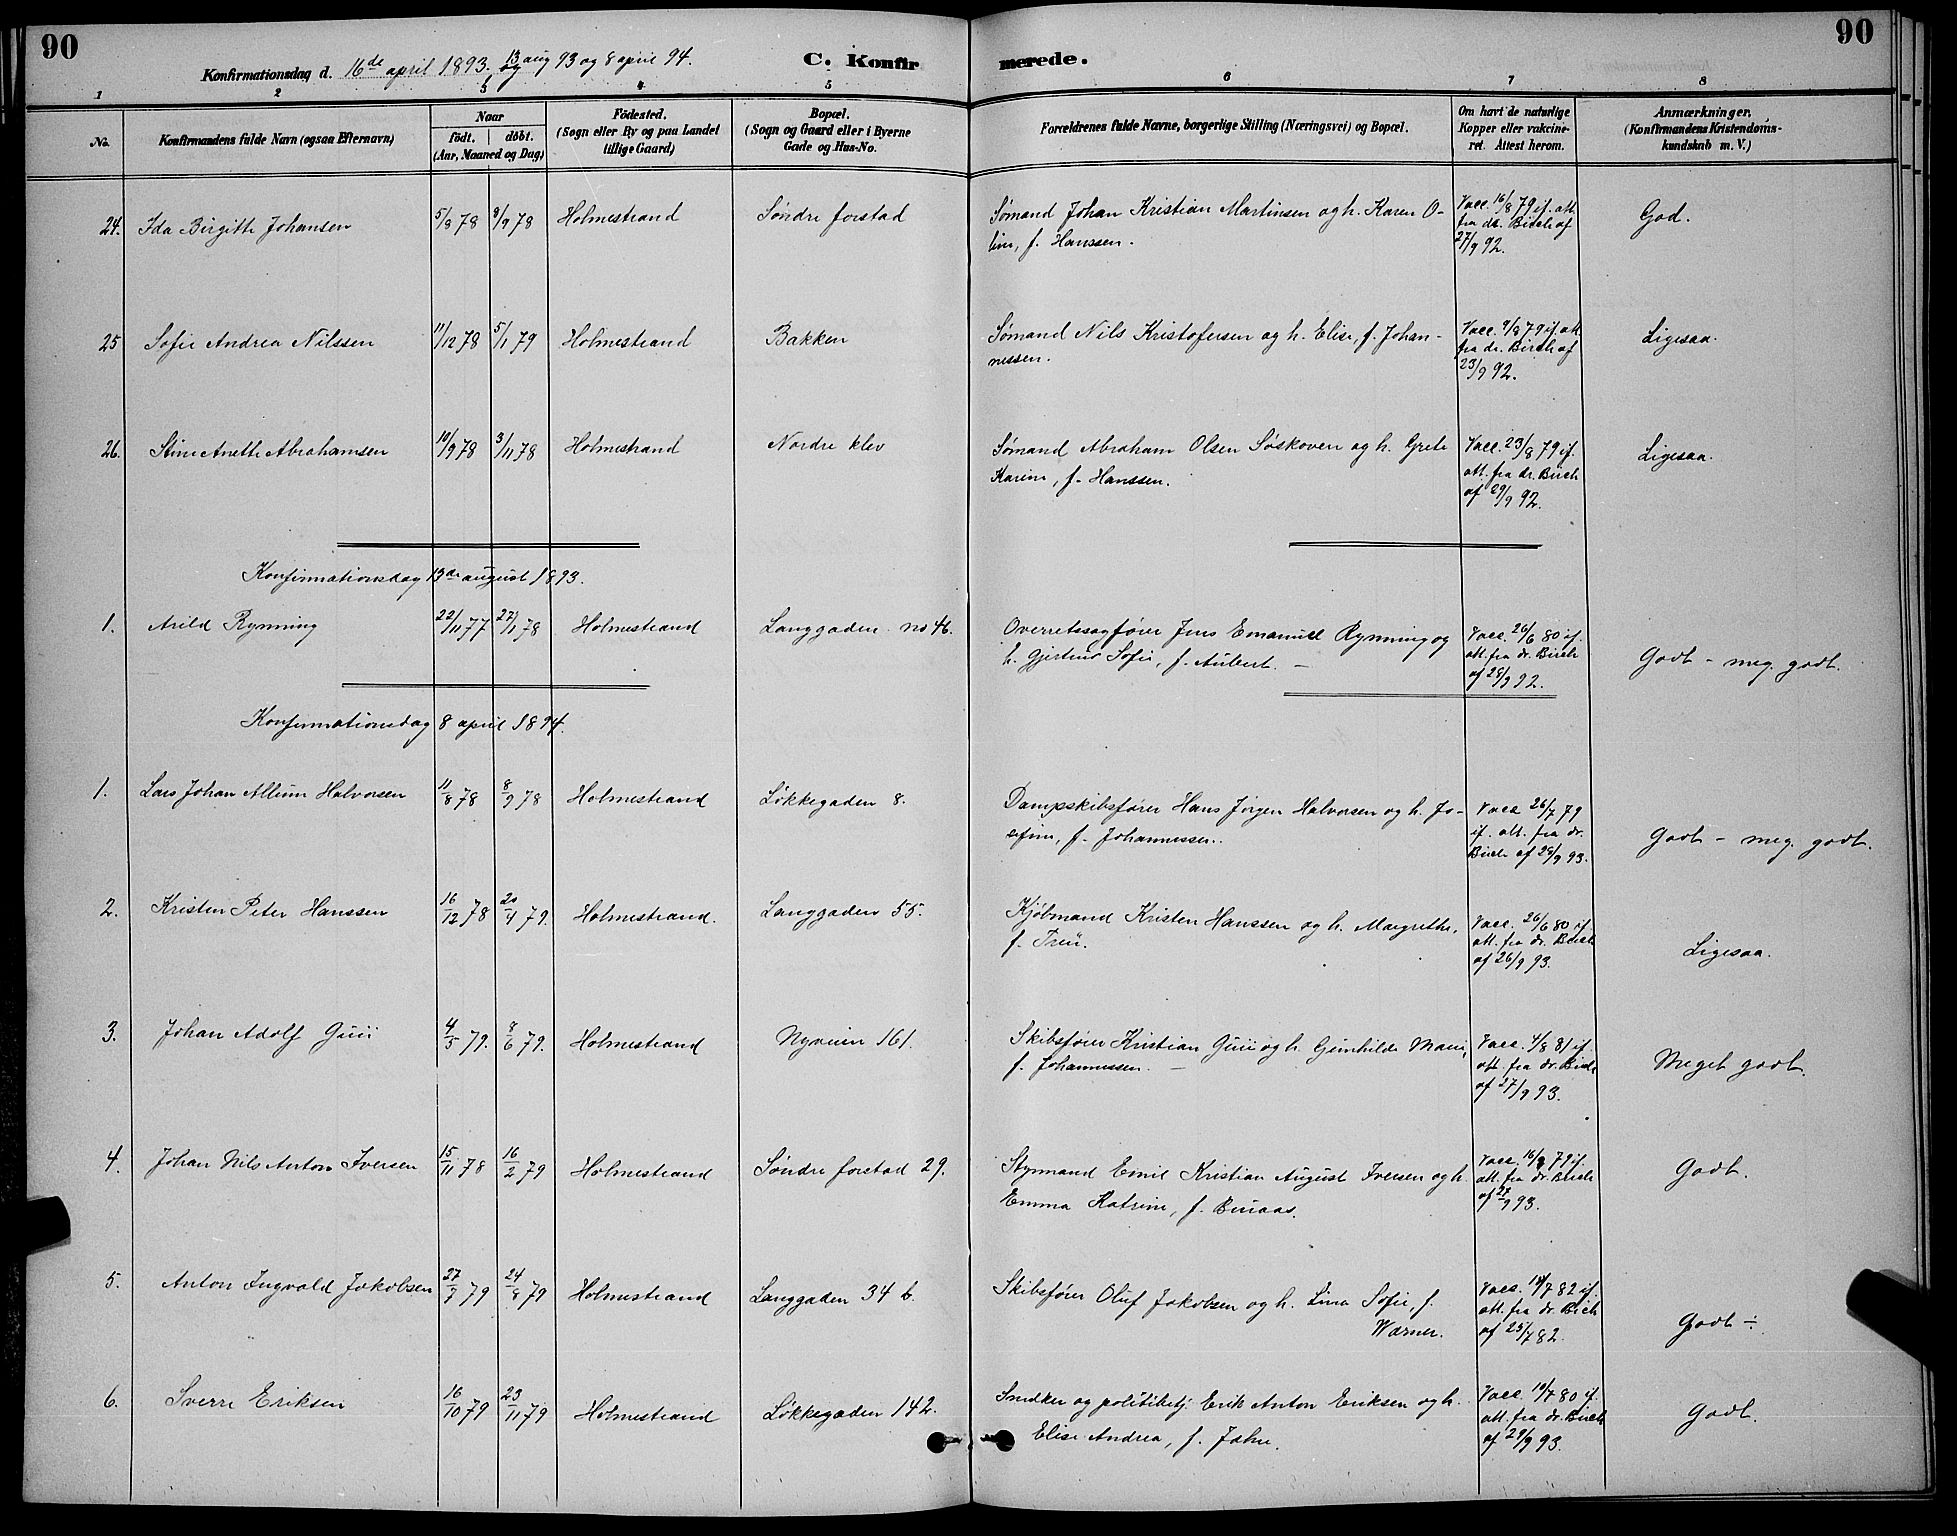 90
90
Konfirmationsdag d. 16de april 1893. og 13 aug 93 og 8 april 94.
C. Konfirmerede.
1 2 3 4 5 6 7 8
No.
Konfirmandens fulde Navn (ogsaa Efternavn)
Naar
födt. döbt.
(Aar, Maaned og Dag)
Födested.
(Sogn eller By og paa Landet
tillige Gaard)
Bopæl.
(Sogn og Gaard eller i Byerne
Gade og Hus-No.
Forældrenes fulde Navne, borgerlige Stilling (Næringsvei) og Bopæl.
Om havt de naturlige
Kopper eller vakcine-
ret. Attest herom.
Anmærkninger.
(Konfirmandens Kristendoms-
kundskab m. V.)
24. Ida Birgitte Johansen 5/8 78 8/9 78 Holmestrand Søndre forstad
Sømand Johan Kristian Martinsen og h. Karen O-
line, f. Hanssen.
Vacc. 16/8 79 if. att.
fra dr. Birch af
27/9 92.
God.
25 Sofie Andrea Nilssen 11/12 78 5/1 79 Holmestrand Bakken
Sømand Nils Kristofersen og h. Elise, f. Johan-
nessen.
Vacc. 9/8 79 if. att
fra dr. Birch af
23/9 92.
Ligesaa.
26. Stine Anette Abrahamsen 10/9 78 3/11 78 Holmestrand Nordre klev
Sømand Abraham Olsen Søskoven og h. Grete
Karine, f. Hanssen.
Vacc. 23/8 79 if.
att. fra dr. Birch
af 29/9 92.
Ligesaa.
Konfirmationsdag 13de august 1893.
1. Arild Rynning 22/11 77 27/1 78 Holmestrand Langgaden no 46.
Overretssagfører Jens Emanuel Rynning og
h. Gjertine Sofie, f. Aubert. –
Vacc. 26/6 80 if.
att. fra dr. Birch
af 28/9 92.
Godt – meg. godt.
Konfirmationsdag 8 april 1894.
1. Lars Johan Allum Halvorsen 11/8 78 8/9 78 Holmestrand Løkkegaden 8.
Dampskibsfører Hans Jørgen Halvorsen og h. Jo-
sefine, f. Johannessen.
Vacc 26/7 79
if. att. fra dr.
Birch af 28/9 93.
Godt – meg. godt.
2. Kristen Peter Hanssen 16/12 78 20/4 79. Holmestrand. Langgaden 55.
Kjøbmand Kristen Hanssen og h. Margrethe,
f. Treu.
Vacc. 26/6 80 if.
att. fra dr. Birch
af 26/9 93.
Ligesaa.
3. Johan Adolf Guii 4/5 79. 8/6 79. Holmestrand Nyveien 161.
Skibsfører Kristian Guii og h. Gunhilde Marie,
f. Johannessen. –
Vacc. 4/8 81 if.
att fra dr. Birch
af 27/9 93.
Meget godt.
4. Johan Nils Anton Iversen 15/11 78 16/2 79 Holmestrand Søndre forstad 29.
Styrmand Emil Kristian August Iversen og h.
Emma Katrine, f. Buaas.
Vacc. 16/8 79 if.
att. fra dr. Birch
af 27/9 93.
Godt.
5. Anton Ingvald Jakobsen 27/7 79 24/8 79 Holmestrand Langgaden 34 b.
Skibsfører Oluf Jakobsen og h. Lina Sofie, f.
Warner.
Vacc. 18/7 82 if.
att. fra dr. Birch
af 25/7 82.
Godt ÷.
6. Sverre Eriksen 16/10 79 23/11 79 Holmestrand Løkkegaden 142.
Snedker og politibetj. Erik Anton Eriksen og h.
Elise Andrea, f. Jahn.
Vacc. 10/7 80 if.
att. fra dr. Birch
af 29/9 93.
Godt.